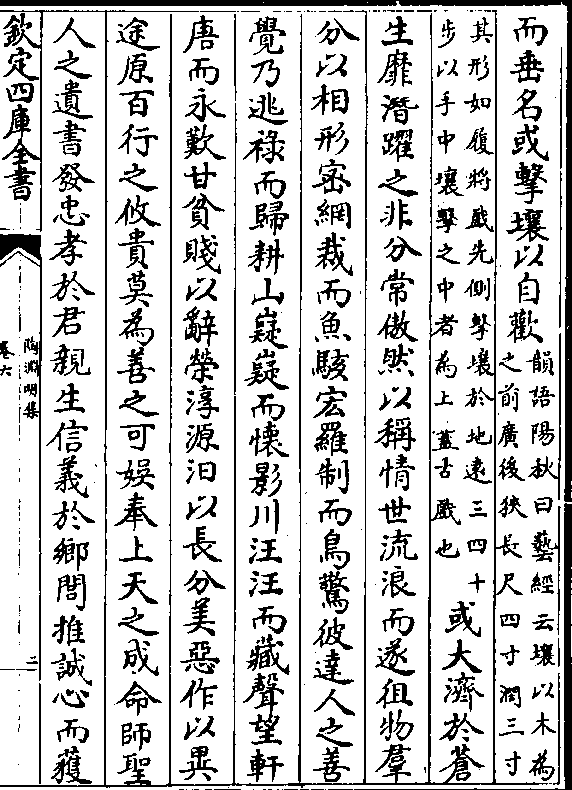 而垂名或擊壤以自歡
韻語陽秋曰藝經云壤以木為
之前廣後狹長尺四寸濶三寸
其形如履將戲先側擊壤於地遠三四十
步以手中壤擊之中者為上蓋古戲也
或大濟於蒼
生靡潛躍之非分常傲然以稱情世流浪而遂徂物羣
分以相形密網裁而魚駭宏羅制而鳥驚彼達人之善
覺乃逃祿而歸耕山嶷嶷而懷影川汪汪而藏聲望軒
唐而永歎甘貧賤以辭榮淳源汨以長分美惡作以異
途原百行之攸貴莫為善之可娛奉上天之成命師聖
人之遺書發忠孝於君親生信義於鄉閭推誠心而獲
欽定四庫全書
陶淵明集
卷六
二